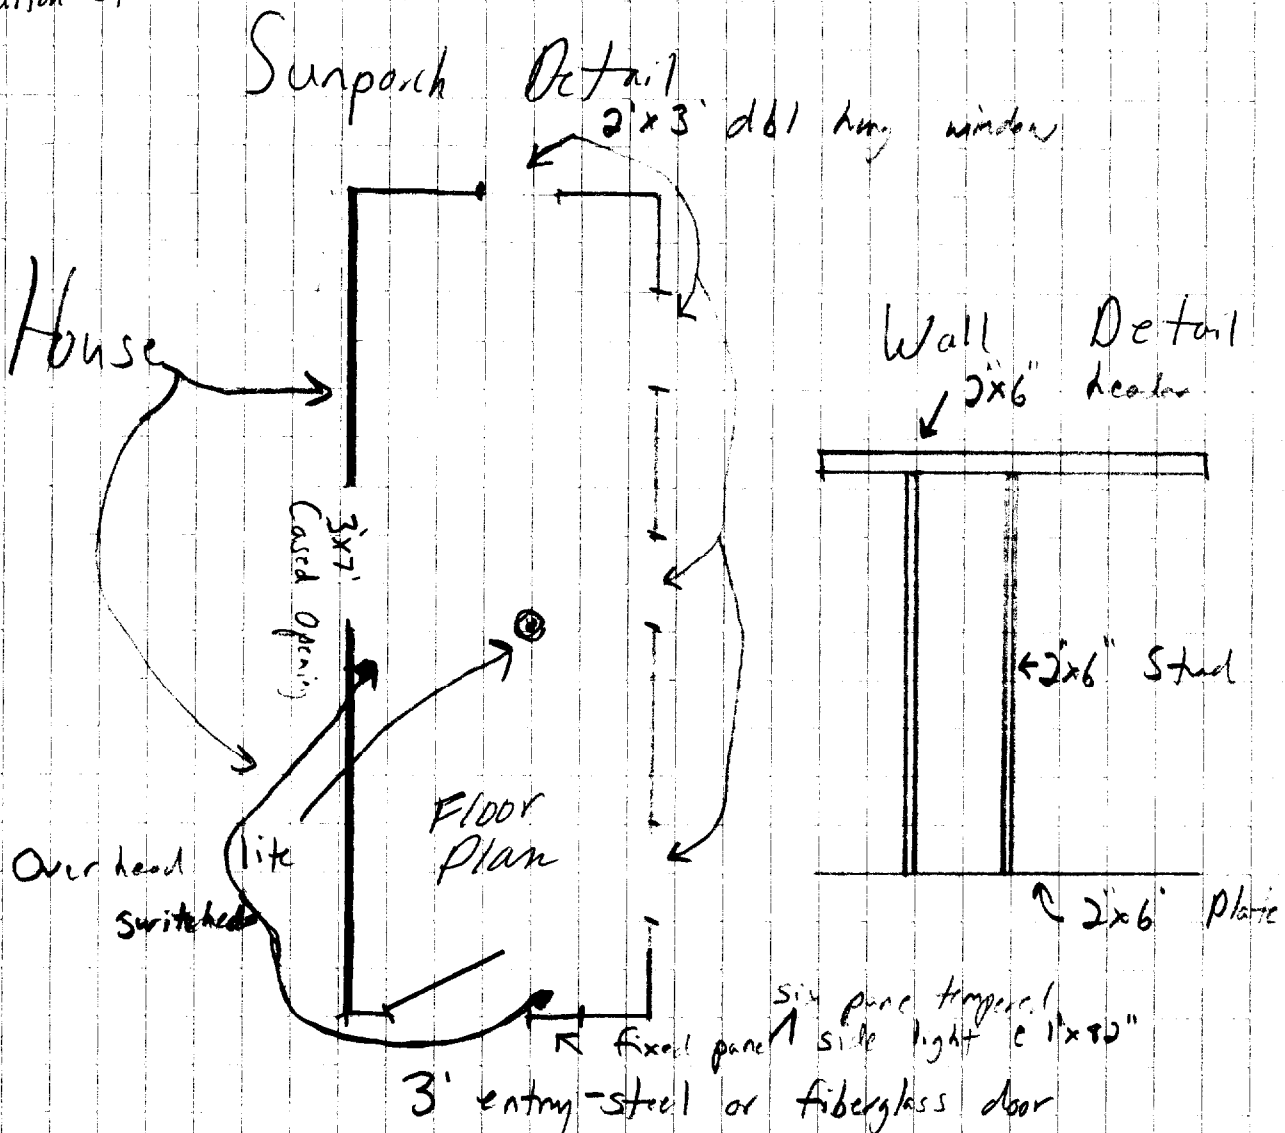 Sunporch Detail
2'x3' dbl hung window
House
Wall Detail
2"x6" header
3'x7'
Cased Opening
2"x6" Stud
Floor
Plan
Overhead lite
switched
2"x6" Plate
six pane tempered
fixed pane side light @ 1'x82"
3' entry-steel or fiberglass door